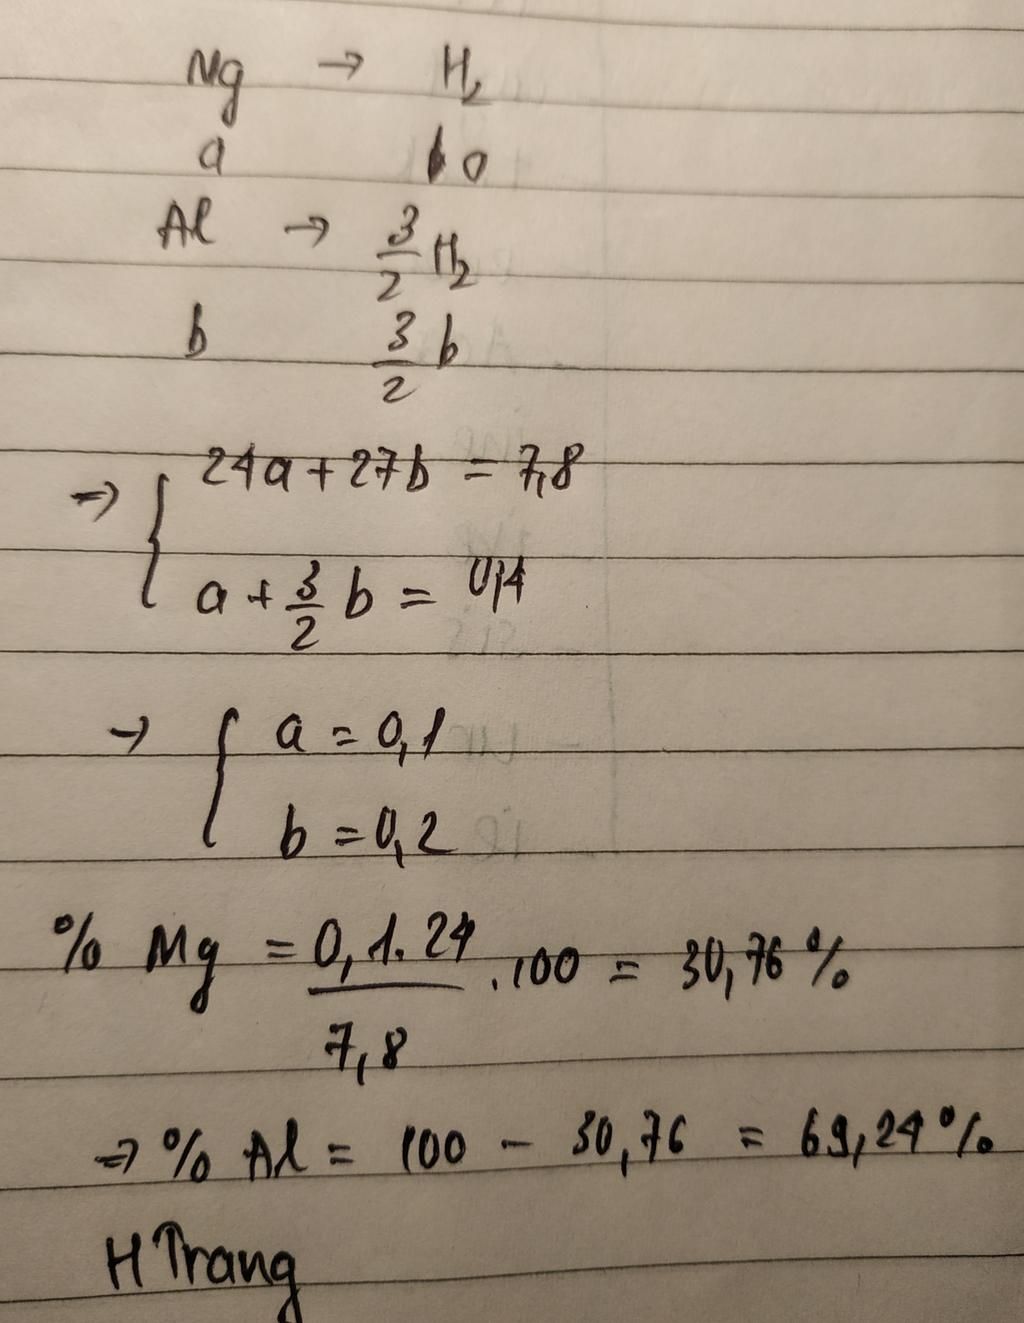 Mg → H₂
a a
Al → 3/2 H₂
b 3/2 b
=> { 24a + 27b = 7,8
a + 3/2 b = 0,4
→ { a = 0,1
b = 0,2
% Mg = 0,1.24 / 7,8 .100 = 30,76 %
=> % Al = 100 - 30,76 = 69,24 %
HTrang